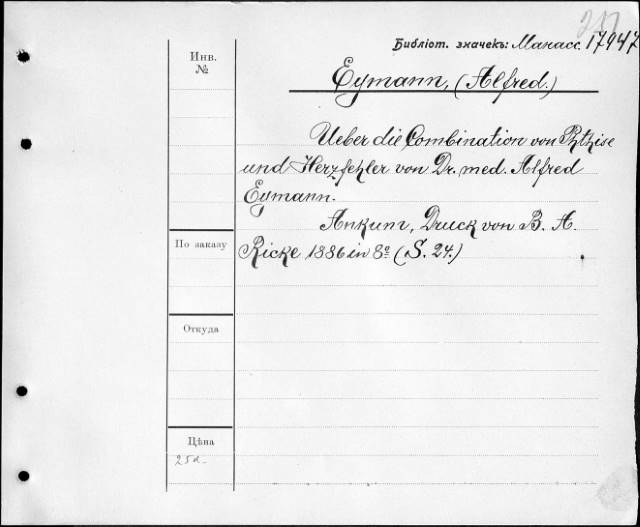 Библіот. значекъ: Манасс. 17947
Инв.
№
Eymann, (Alfred.)
Ueber die Combination von Phthise
und Herzfehler von Dr. med. Alfred
Eymann.
Ankum, Druck von B. A.
Ricke 1886 in 8º (S. 24.)
По заказу
Откуда
Цѣна